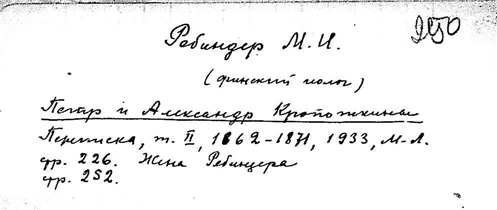 Ребиндер М. И.
(финский полог)
Петр и Александр Кропоткины
Переписка, т. II, 1862-1871, 1933, М-Л.
стр. 226. Жена Ребиндера
стр. 252.